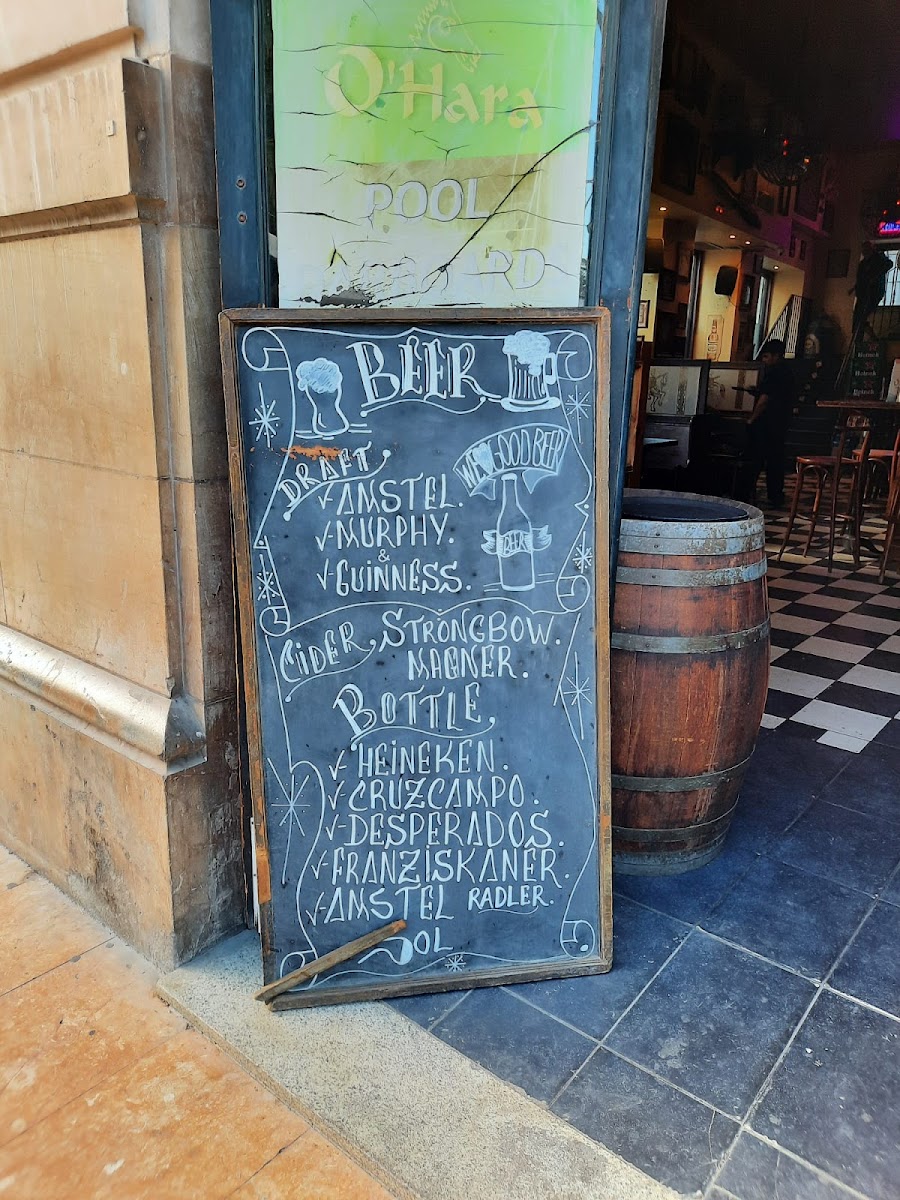 O'Hara
POOL
BEER
WE GOOD BEER
DRAFT
AMSTEL.
MURPHY.
&
GUINNESS.
BEER
CIDER, STRONGBOW.
MAGNER.
BOTTLE,
HEINEKEN.
CRUZCAMPO.
DESPERADOS.
FRANZISKANER.
AMSTEL RADLER.
SOL